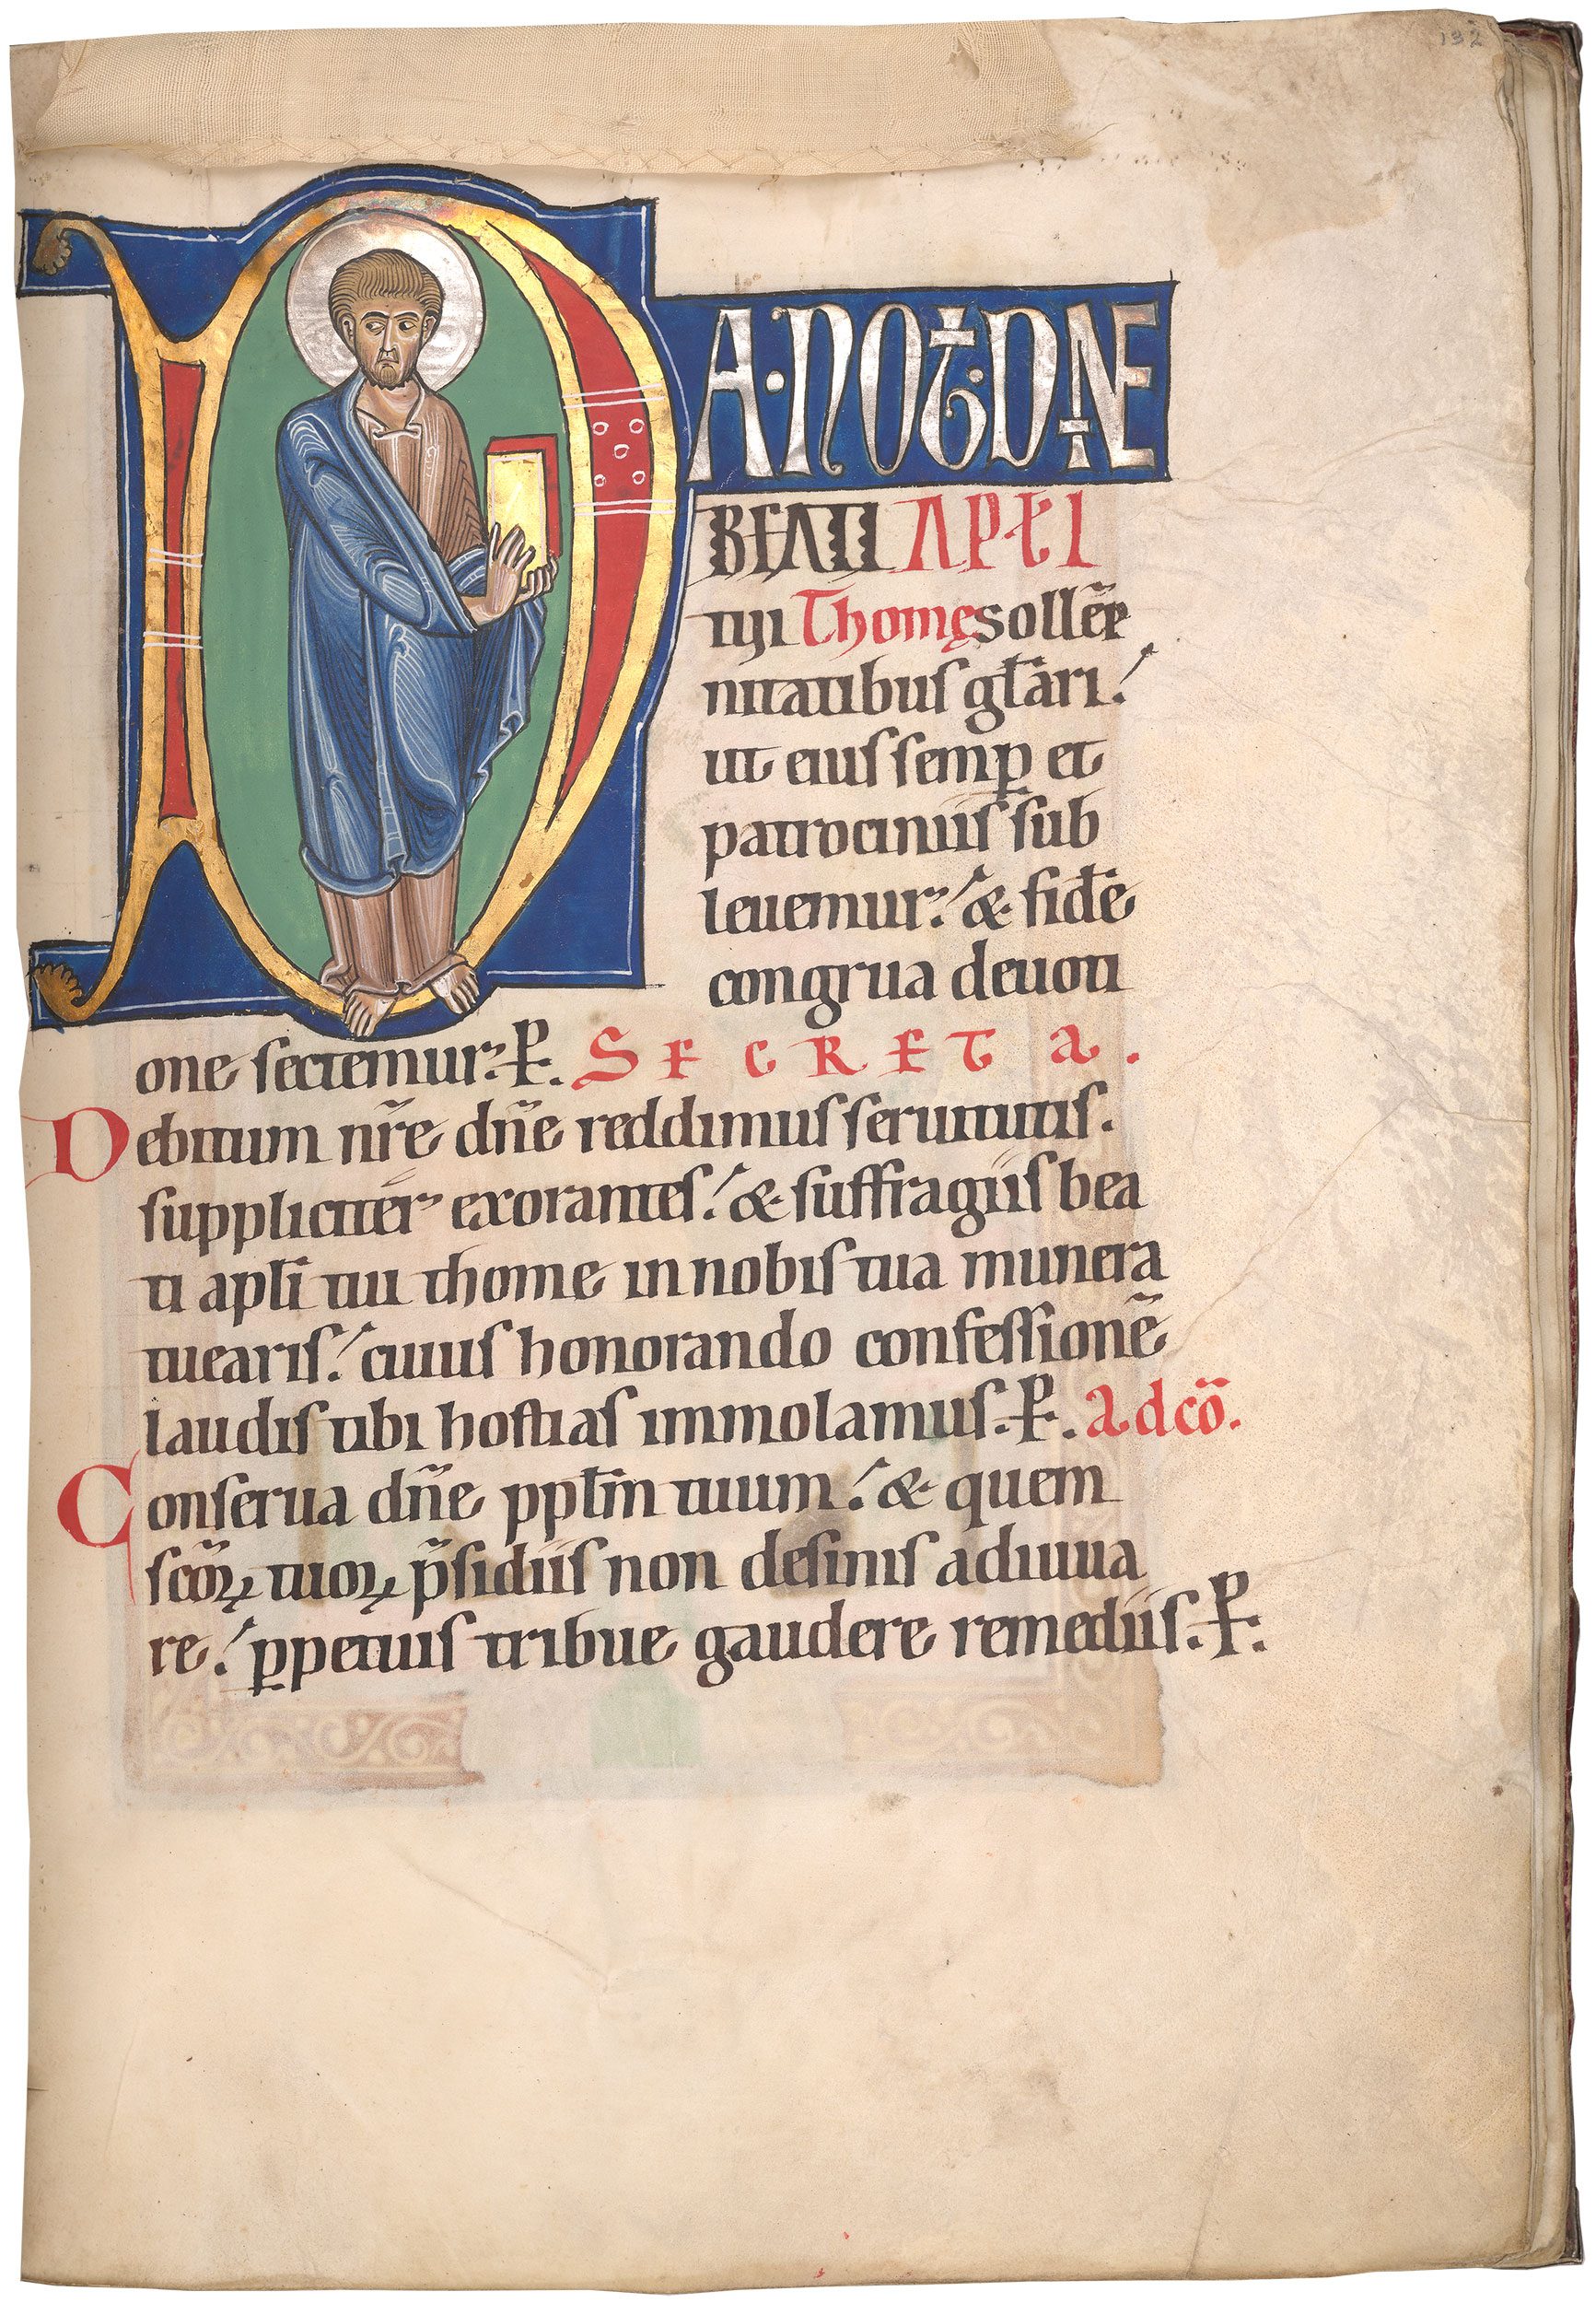 132
DA·NOB̄·DNE
BEATI APŁI
tui Thomę sollēp
nitatibus głari.
ut eius semp̱ et
patrociniis sub
leuemur. & fidē
congrua deuoti
one sectemur. P̶. SECRETA.
Debitum nr̃e dñe reddimus seruitutis.
suppliciter exorantes. & suffragiis bea
ti apłi tui thome in nobis tua munera
tuearis. cuius honorando confessionẽ
laudis tibi hostias immolamus. P̶. ad cõ.
Conserua dñe ppłm tuum. & quem
sc̃oꝝ tuoꝝ p̃sidiis non desinis adiuua
re. ꝑpetuis tribue gaudere remediis. P̶.